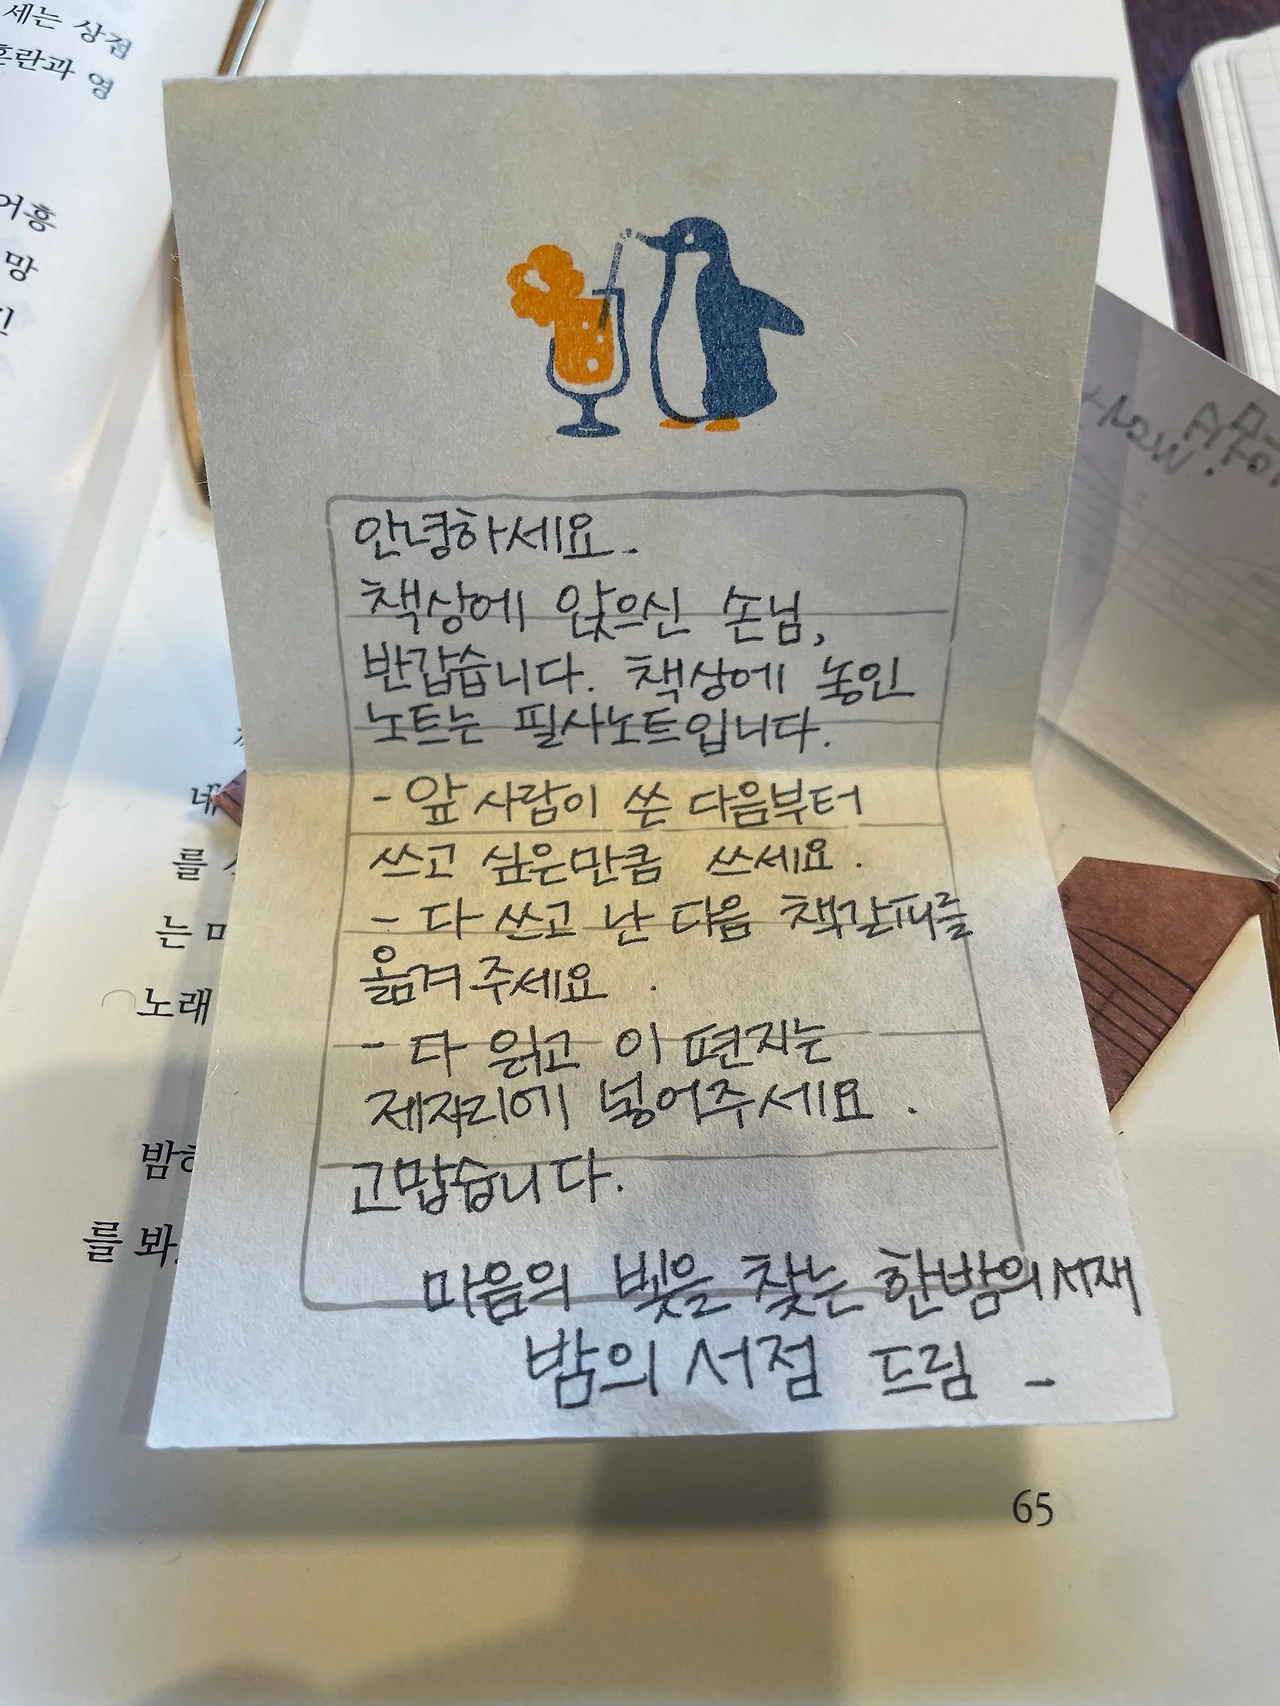 세는 상점
혼란과 영
어흥
망
안녕하세요.
책상에 앉으신 손님,
반갑습니다. 책상에 놓인
노트는 필사노트입니다.
- 앞 사람이 쓴 다음부터
쓰고 싶은만큼 쓰세요.
- 다 쓰고 난 다음 책갈피를
옮겨 주세요.
- 다 읽고 이 편지는
제자리에 넣어주세요.
고맙습니다.
마음의 빛을 찾는 한밤의 서재
밤의 서점 드림 -
네
를
는
노래
밤하
를 봐
65